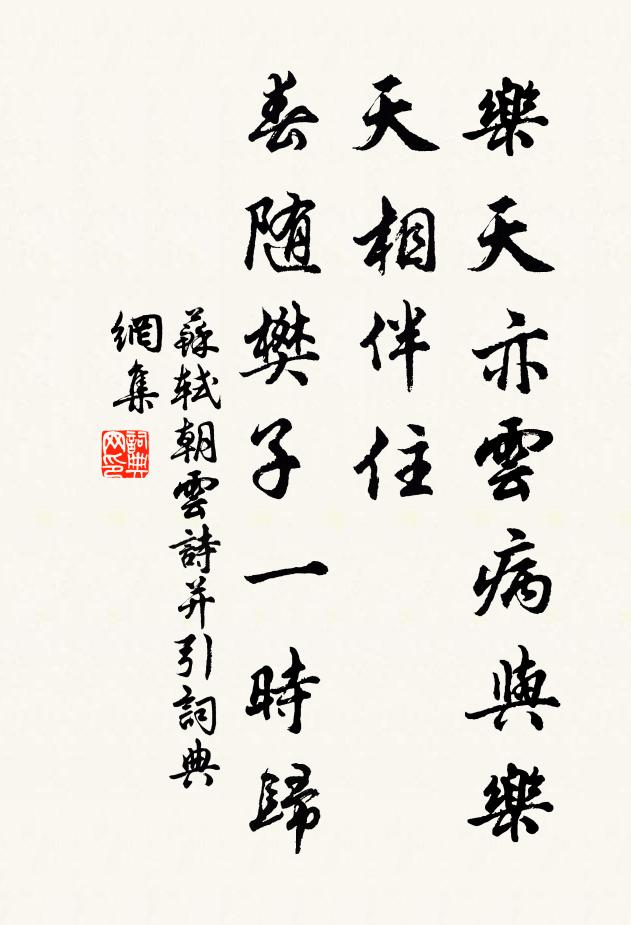 樂天亦雲病與樂
天相伴住
春随樊子一時歸
蘇軾朝雲詩并引詞典
網集
詞典
网印